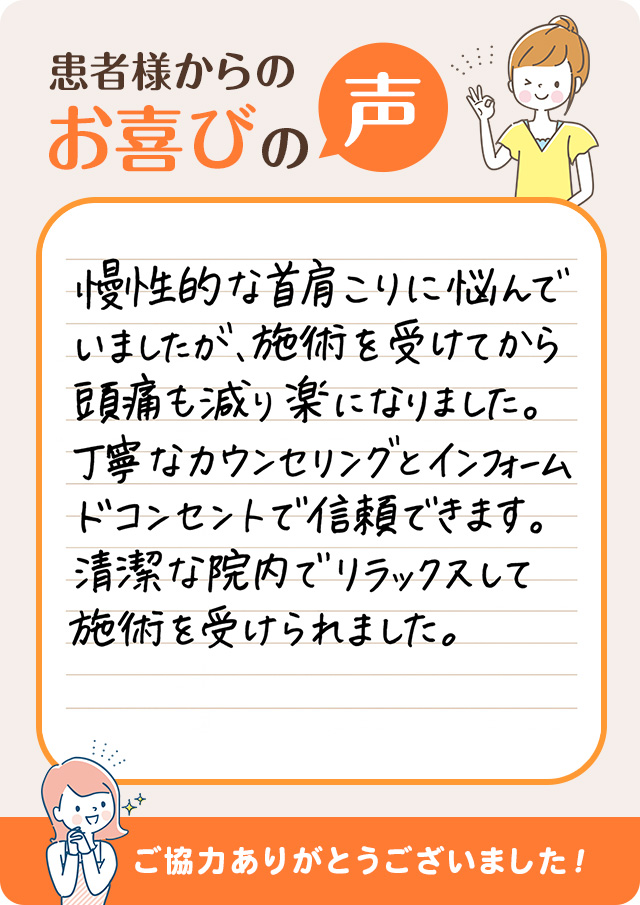 患者様からの
お喜びの声
慢性的な首肩こりに悩んで
いましたが、施術を受けてから
頭痛も減り楽になりました。
丁寧なカウンセリングとインフォーム
ドコンセントで信頼できます。
清潔な院内でリラックスして
施術を受けられました。
ご協力ありがとうございました!